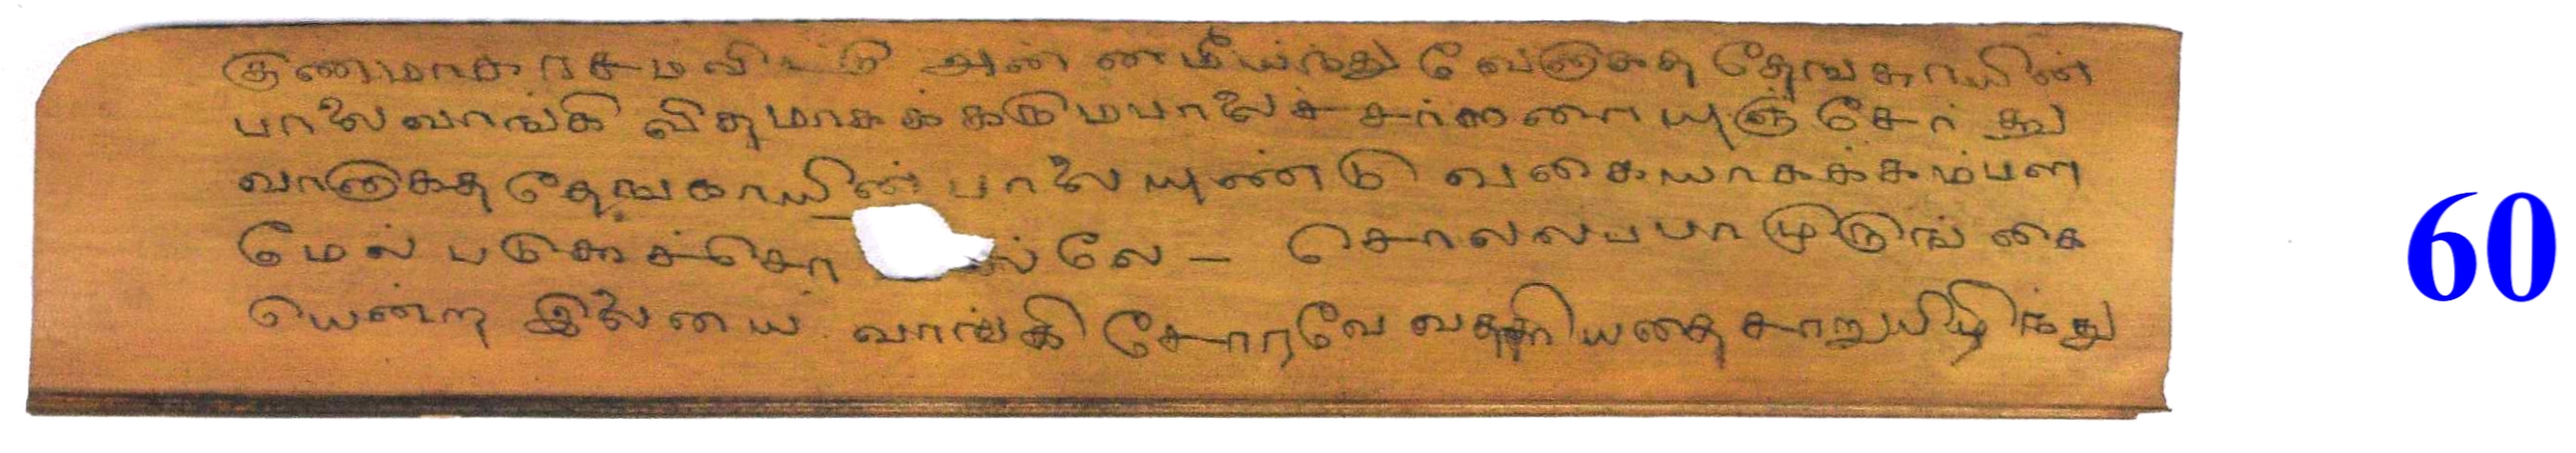 குணமாகரசமவிட்டு அன்னமீய்ந்து வேளுகத தேஙகாயின்
பாலைவாங்கி விதமாகக்கடுமபாலைச் சர்கரையுஞ் சேர்த்து
வாளுகத தேஙகாயின் பாலையுண்டு வகையாகக்கம்பள
மேல் படுகச்சொ லே - சொலலபபா முடுங்கை
யென்ற இலையை வாங்கி சோரவே வததியதை சாறுயிழிந்து
60